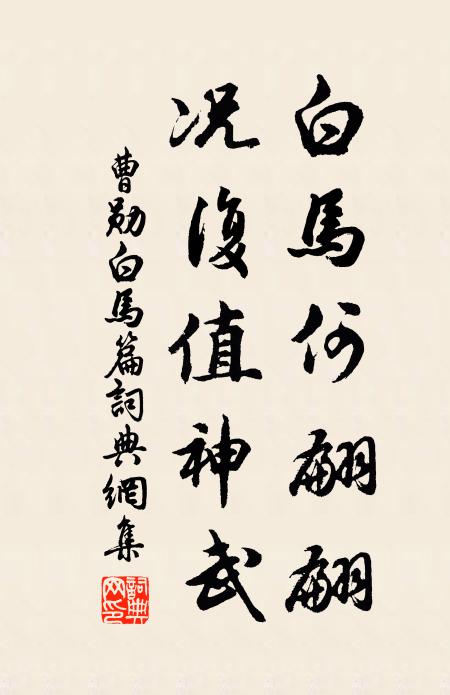 白馬何翩翩
况復值神武
曹勛白馬篇詞典網集
詞典
網印